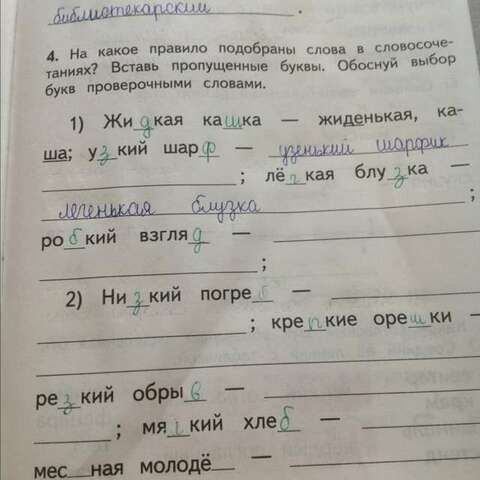 библиотекарский .
4. На какое правило подобраны слова в словосоче-
таниях? Вставь пропущенные буквы. Обоснуй выбор
букв проверочными словами.
1) Жидкая кашка — жиденькая, ка-
ша; узкий шарф — узенький шарфик
; лёгкая блузка —
легенькая блузка ;
робкий взгляд —
;
2) Низкий погреб —
; крепкие орешки —
резкий обрыв —
; мягкий хлеб —
мес_ная молодё__ —